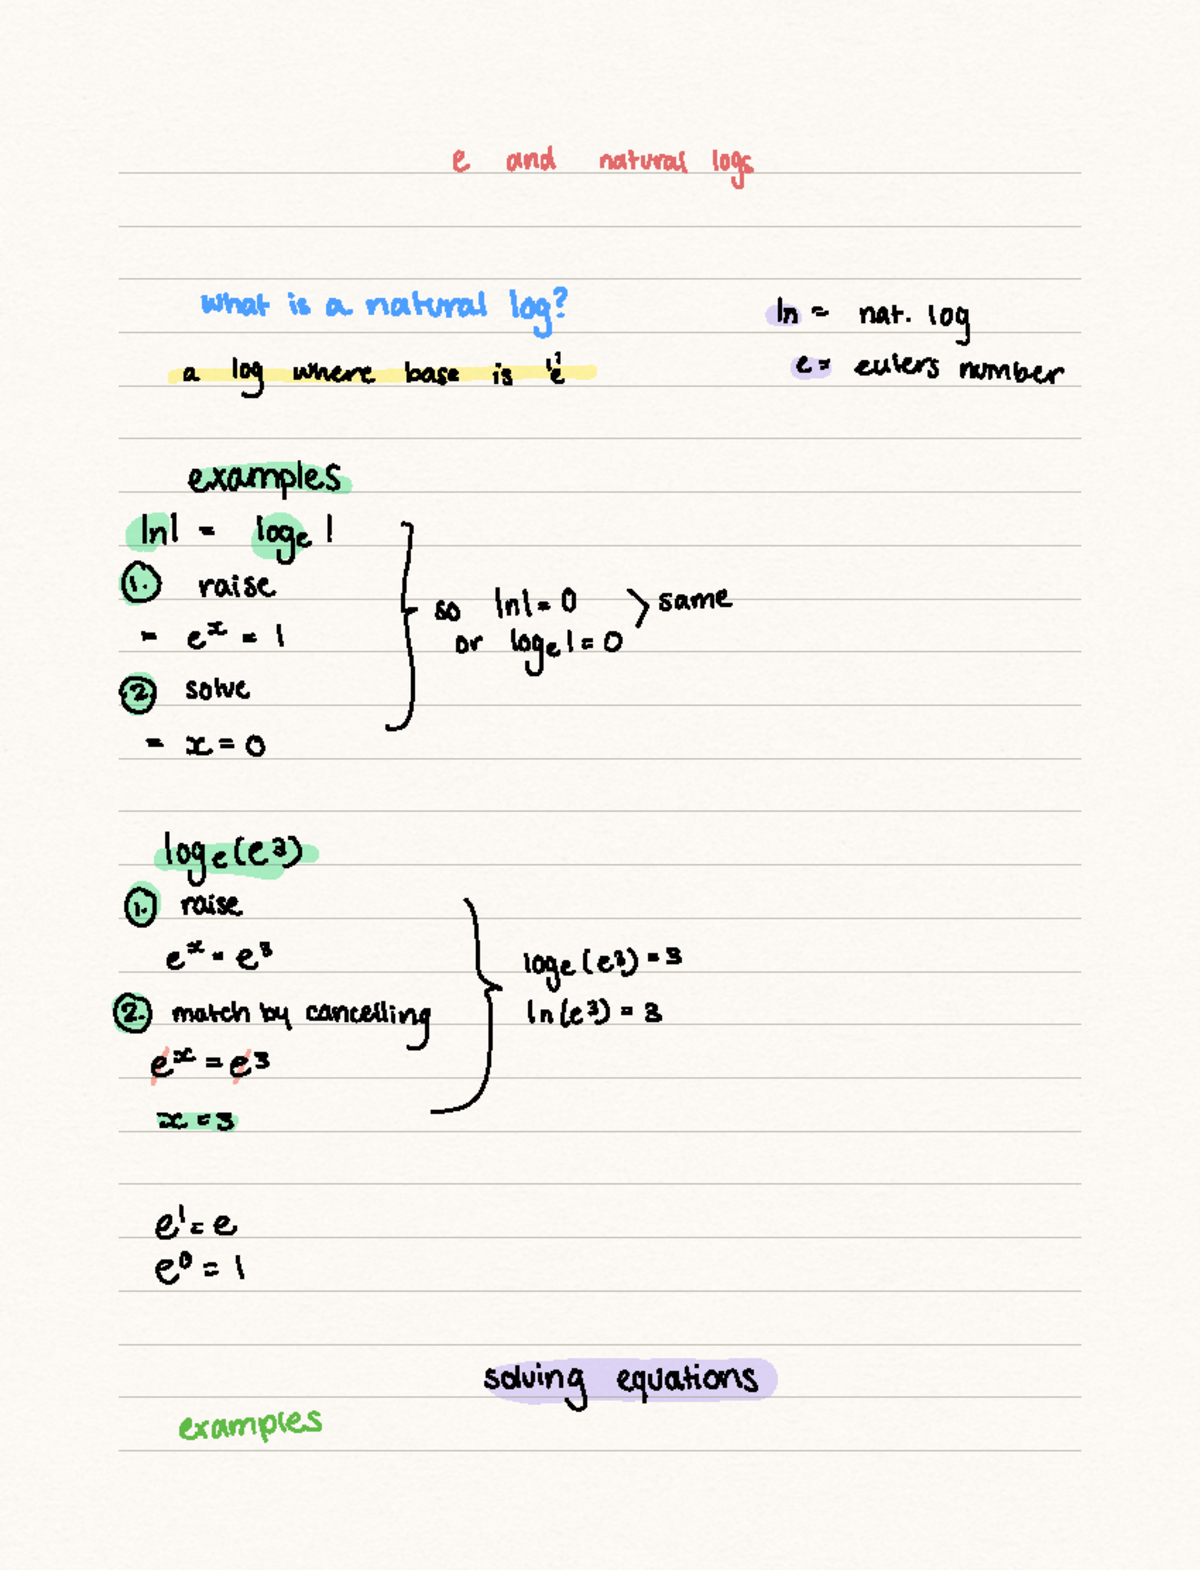 e and natural logs
what is a natural log?
ln = nat. log
a log where base is 'e'
e = eulers number
examples
ln1 = logₑ 1
1. raise
= eˣ = 1
so ln1 = 0
or logₑ1 = 0
> same
2 solve
= x = 0
logₑ(e³)
1. raise
eˣ = e³
2. match by cancelling
eˣ = e³
x = 3
logₑ(e³) = 3
ln(e³) = 3
e¹ = e
e⁰ = 1
solving equations
examples